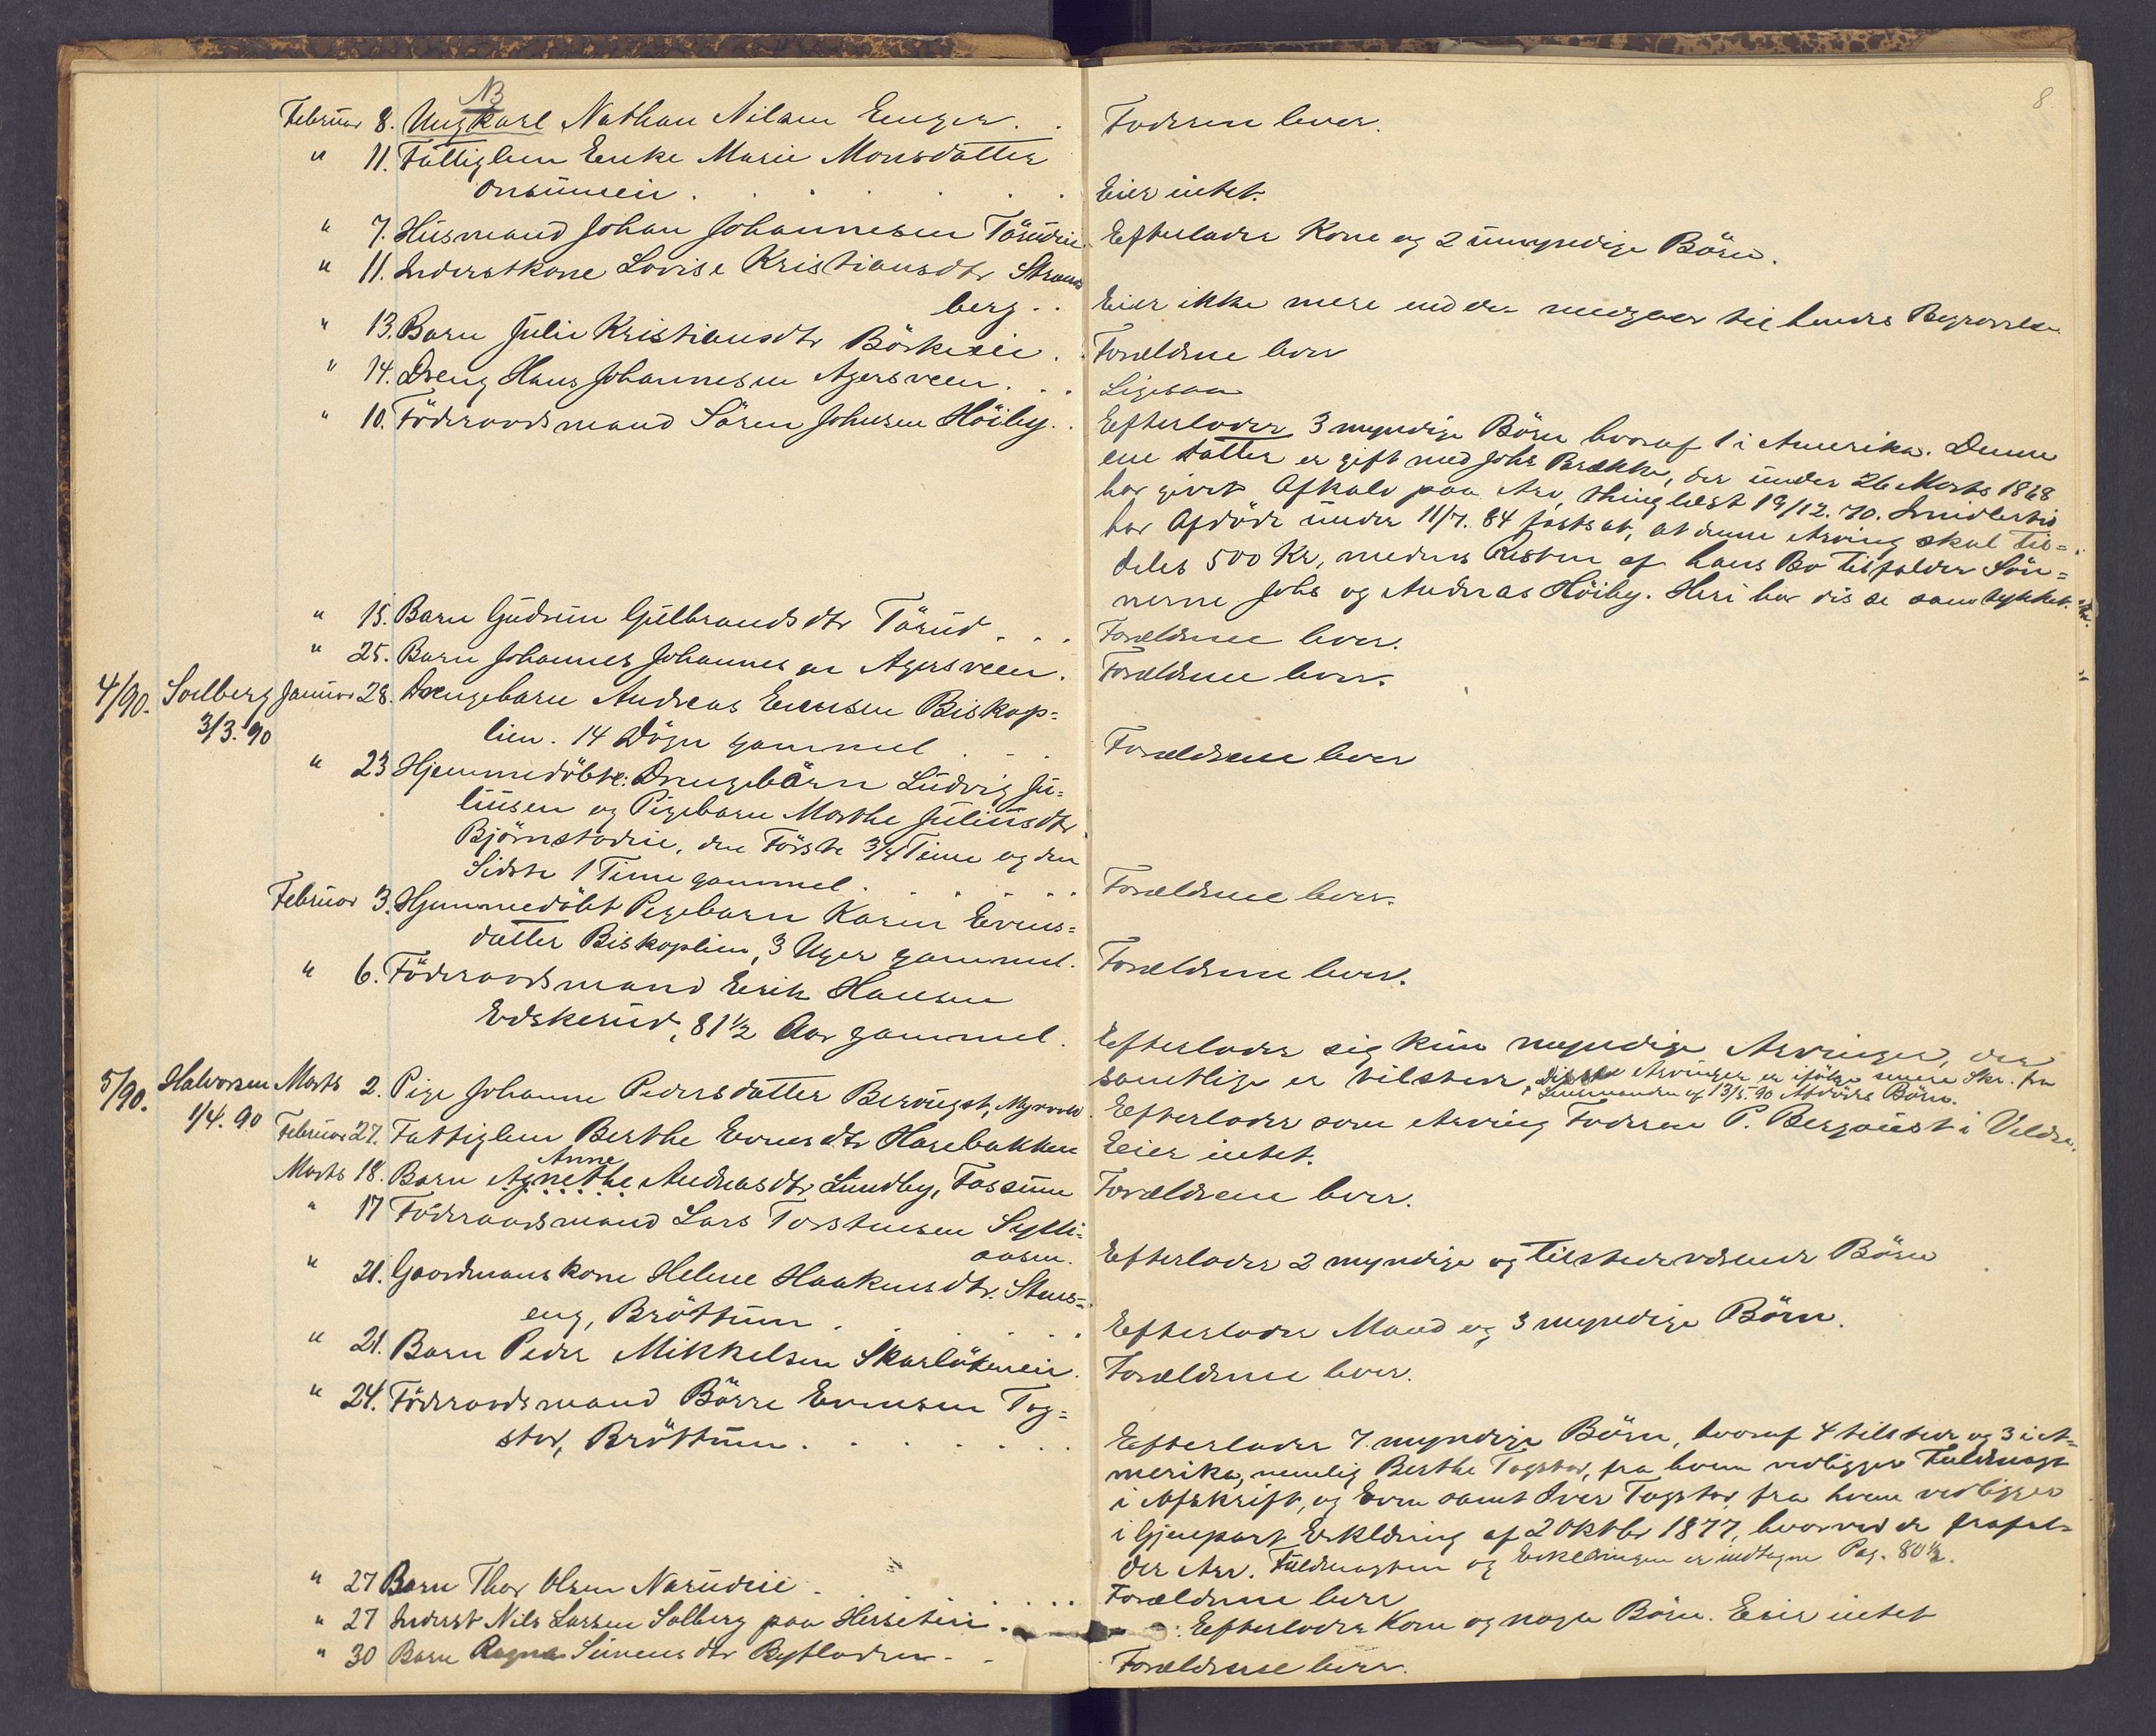 8
NB
Februar 8. Ungkarl Nathan Nilsen Enger . . Faderen lever.
" 11. Fattiglem Enke Marie Monsdatter
Onsumeie . . . . . Eier intet.
" 7. Husmand Johan Johannesen Törudeie. Efterlader Kone og 2 umyndige Börn.
" 11. Inderstkone Lovise Kristiansdtr Strands
berg . . Eier ikke mere end der medgaar til hendes Begravelse
" 13. Barn Julie Kristiansdtr Börkeeie . . Forældrene lever
" 14. Dreng Hans Johannesen Agersveen . . . Ligesaa
" 10. Föderaadsmand Sören Johnsen Höiby. . Efterlader 3 myndige Börn hvoraf 1 i Amerika. Denne
ene Datter er gift med Johs Brække, der under 26 Marts 1868
har givet Afkald paa Arv, thinglæst 19/12. 70. Imidlertid
har Afdöde under 11/7. 84 fastsat, at denne Arving skal til=
deles 500 Kr, medens Resten af hans Bo tilfalder Sön=
nerne Johs og Andreas Höiby. Heri har disse samtykket.
" 15. Barn Gudrun Gulbrandsdtr Törud . . . Forældrene lever.
" 25. Barn Johannes Johannesen Agersveen. Forældrene lever.
4/90. Soelberg Januar 28. Drengebarn Andreas Evensen Biskop=
3/3. 90 lien. 14 Dögn gammel . . . Forældrene lever
" 23 Hjemmedöbte: Drengebarn Ludvig Ju=
liusen og Pigebarn Marthe Juliusdtr
Björnstadeie, den Förste 3/4 Time og den
Sidste 1 Time gammel . . . . . . Forældrene lever.
Februar 3. Hjemmedöbt Pigebarn Karin Evens=
datter Biskoplien, 3 Uger gammel. Forældrene lever.
" 6. Föderaadsmand Erik Hansen
Evskerud, 81 1/2 Aar gammel. Efterlader sig kun myndige Arvinger, der
samtlige er tilstede, Disse Arvinger er ifölge senere Skr. fra
Lensmanden af 13/5. 90 Afdödes Börn.
5/90. Halvorsen Marts 2. Pige Johanne Pedersdatter Berquist, Myrvold Efterlader som Arving Faderen P. Bergquist i Veldre.
1/4. 90 Februar 27. Fattiglem Berthe Evensdtr Harebakken Eier intet.
Anne
Marts 18. Barn Agnethe Andreasdtr Lundby, Fossum Forældrene lever.
" 17 Föderaadsmand Lars Torstensen Sylli=
aasen. Efterlader 2 myndige og tilstedeværende Börn
" 21. Gaardmandskone Helene Haakensdtr. Stens=
eng, Bröttum . . . . . Efterlader Mand og 3 myndige Börn.
" 21. Barn Peder Mikkelsen Skarlökeneie. Forældrene lever.
" 24. Föderaadsmand Börre Evensen Tog=
stad, Bröttum . . . . . . . Efterlader 7 myndige Börn, hvoraf 4 tilstede og 3 i A=
merika, nemlig Berthe Togstad, fra hvem vedligger Fuldmagt
i Afskrift, og Even samt Iver Togstad, fra hvem vedligger
i Gjenpart Erklæring af 2 Oktbr 1877, hvorved de frafal=
der Arv. Fuldmagten og Erklæringen er indtagne Pag. 80 1/2.
" 27 Barn Thor Olsen Narudeie . . . . . Forældrene lever
" 27 Inderst Nils Larsen Solberg paa . Efterlader Kone og nogle Börn. Eier intet
" 30 Barn Ragna Simensdtr Byfladen . . Forældrene lever.